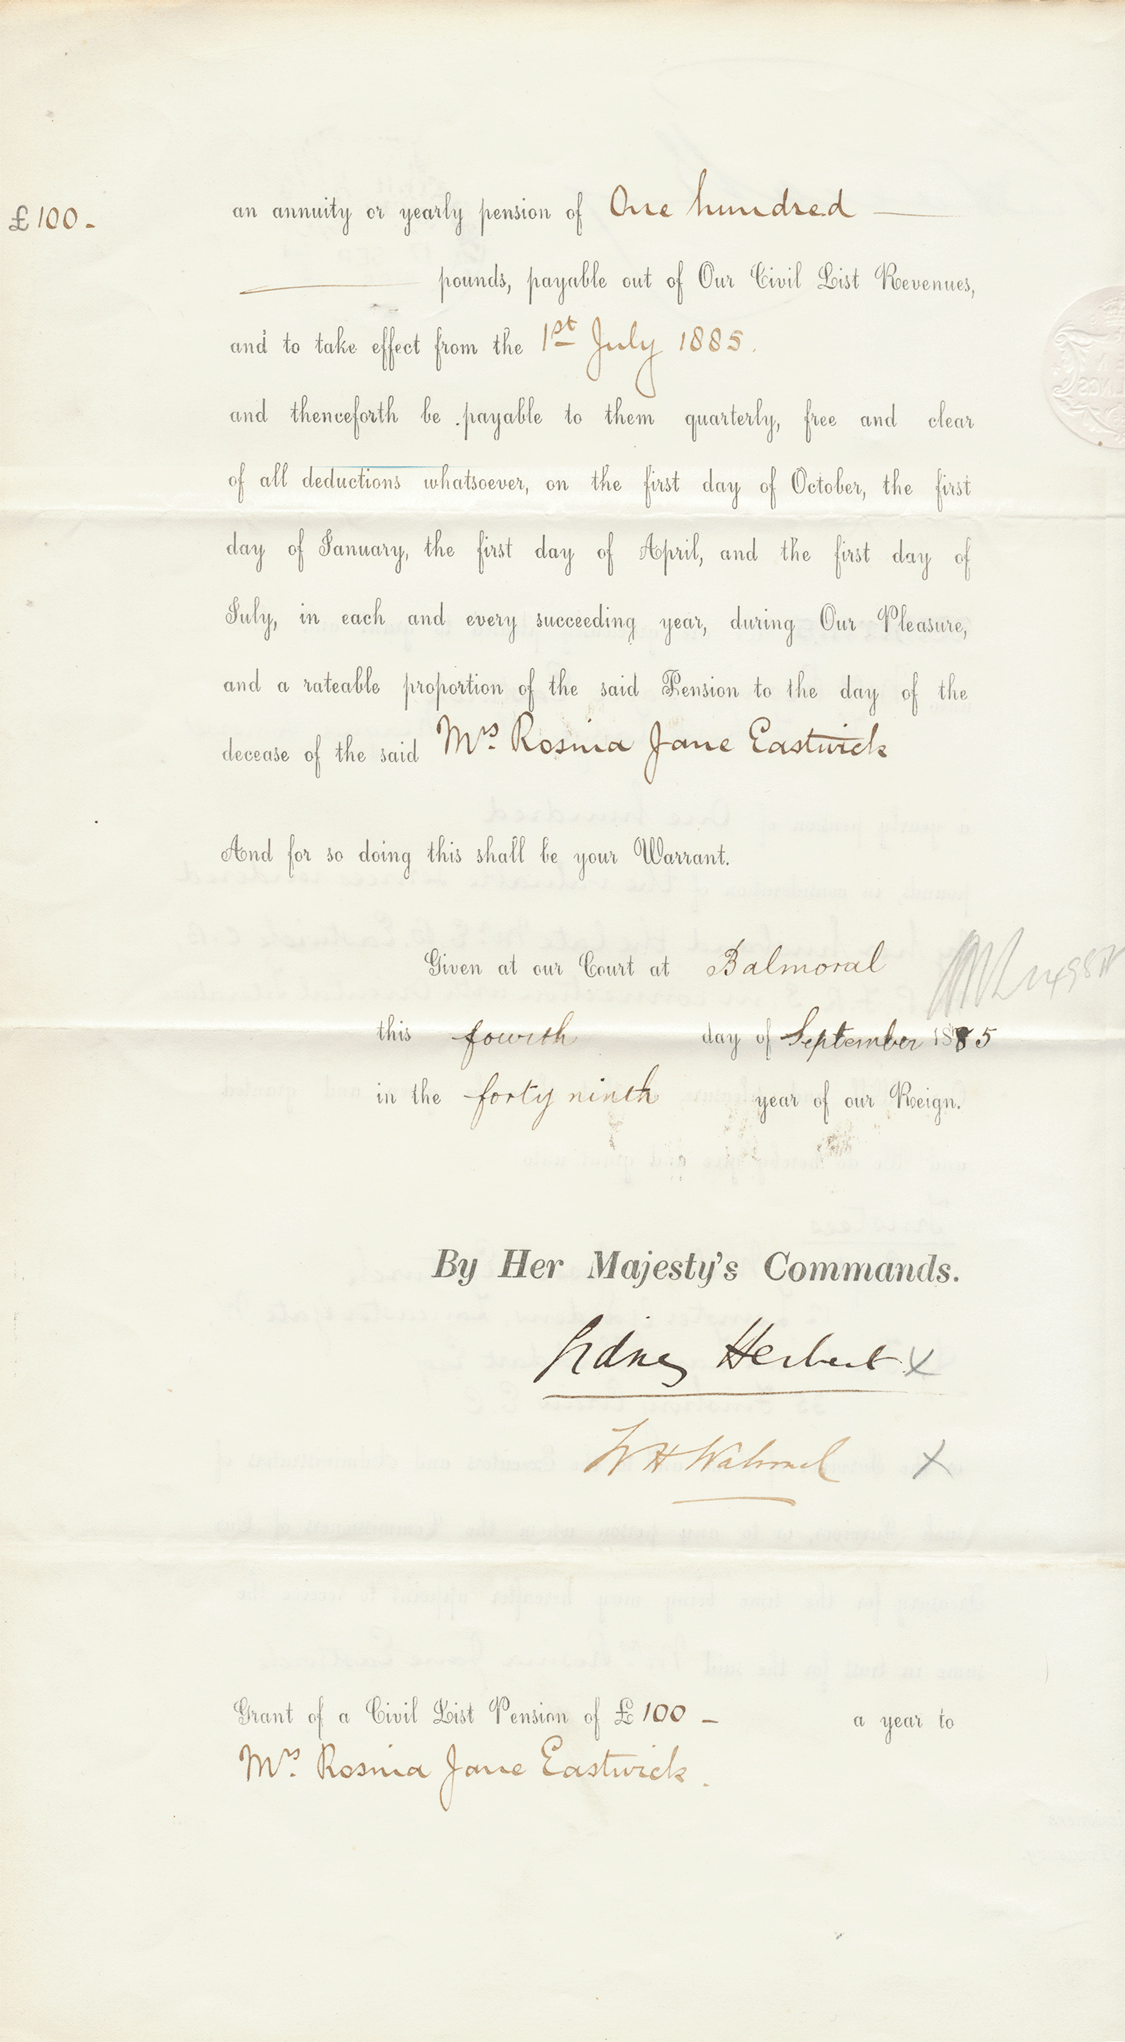 £100-
an annuity or yearly pension of One hundred
pounds, payable out of Our Civil List Revenues,
and to take effect from the 1st July 1885.
and thenceforth be payable to them quarterly, free and clear
of all deductions whatsoever, on the first day of October, the first
day of January, the first day of April, and the first day of
July, in each and every succeeding year, during Our Pleasure,
and a rateable proportion of the said Pension to the day of the
decease of the said Mrs. Rosina Jane Eastwick
And for so doing this shall be your Warrant.
Given at our Court at Balmoral
this fourth day of September 1885
in the forty ninth year of our Reign.
By Her Majesty's Commands.
Sidney Herbert x
W H Walrond x
Grant of a Civil List Pension of £100 - a year to
Mrs. Rosina Jane Eastwick.